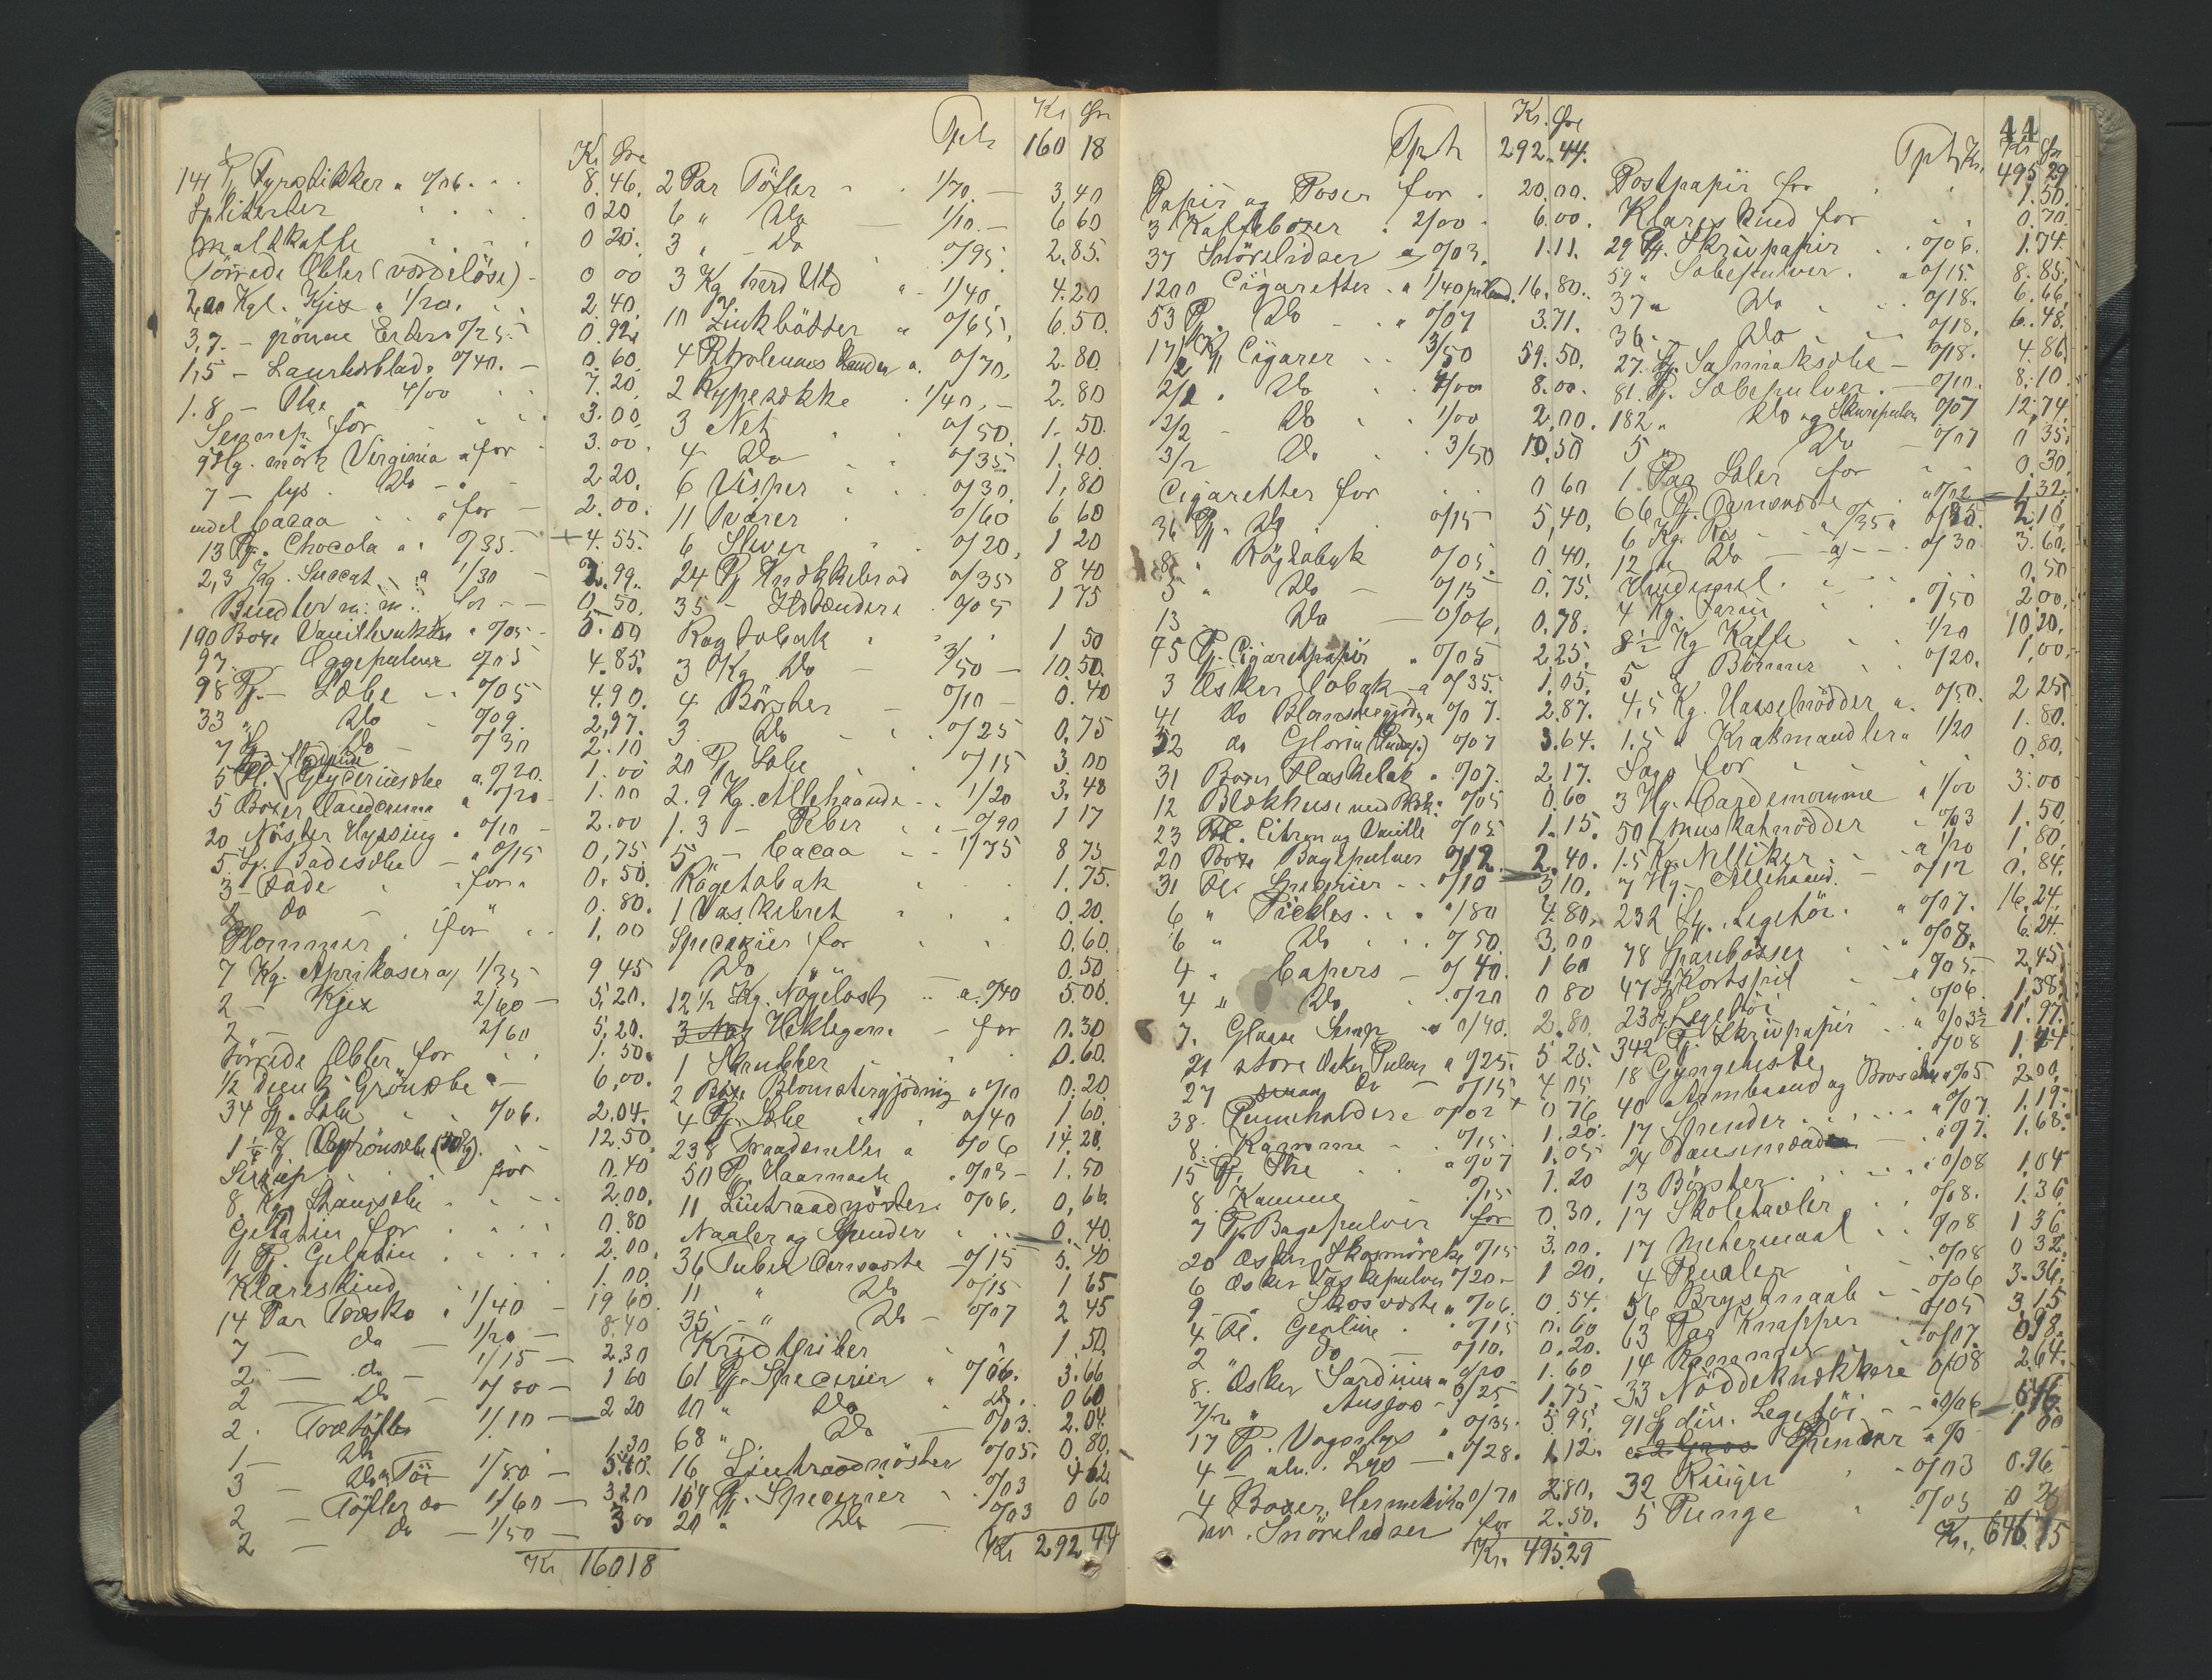 Kr Øre
141 Pk Fyrstikker a 0/06 8.46.
Spliterter 0 20
Maltkaffe 0 20.
Tørrede Æbler (værdiløse) - 0 00
2,00 Kgl. Kjex a 1/20. 2.40.
3,7. - grønne Erter 0/25 0.92.
1,5 - Laurbærblad. 0/40. - 0.60
1.8 - The a 4/00 7.20
Sennep for 3.00
9 Hg. mørk Virginia a for 3.00
7 - lys. Do - 2.20.
endel Cacao a for - 2.00.
13 Pk. Chocola a 0/35. + 4.55.
2,3 Kg. Succat a 1/30 - 2.99.
Bendler m.m. for - 0.50.
190 Boxe Vanillesukker a 0/05 -
97 Eggepulver 0/05 4.85.
98 Pk. - Sæbe - 0/05 4.90.
33 " Do - 0/09. 2,97.
7 Do - 0/30 2.10
5 Fl. flydende Glycerinsæbe a 0/20. 1.00
5 Boxer Tandcreme a 0/20 - 1.00
20 Nøster Hyssing a 0/10 - 2.00
5 St. Badesæbe - a 0/15 0,75
3 - Sæbe for 0.50.
do - 0.80.
Plommer for 1.00
7 Kg. Aprikoser a 1/35 9 45
2 - Kjex 2/60 - 5,20.
2 - 2/60 5,20.
Tørrede Æbler for 1.50.
1/2 Dunk Grønsæbe - 6,00.
34 St. Sæbe 0/06. 2.04.
12.50
Sirup for 0.40
8 Kg. Stangsæbe 2.00.
Gelatin for 0.80
1 Pk. Gelatin 2.00.
Klareskind 1.00.
14 Par Træsko a 1/40 - 19 60
7 - do - 1/20 - 8.40
2 - do - 1/15 - 2.30
2 - Do - 0/80 - 1 60
2. Trætøfler 1/10 - 2 20
1 - Do 1.30
3 - Do Tøi 1/80 - 5.40.
2 - Tøfler do 1/60 - 3 20
2 - do - 1/50 - 3 00
Kr 160 18
Kr Øre
Tpt 160 18
2 Par Tøfler 1/70 - 3,40
6 " Do - 1/10. - 6 60
3 " Do 0/95 2.85.
3 Kg hærd Uld 1/40 4.20
10 Zinkbøtter a 0/65, 6.50.
4 Petroleums Kander a. 0/70, 2.80.
2 Rypesække 1/40. - 2.80
3 Net 0/50. 1.50.
4 Do 0/35 1.40.
6 Visper 0/30 1,80
11 Tvarer 0/60 6 60
6 Slever 0/20, 1 20
24 Pk Knækkebrød 0/35 8 40
35 - Ildtændere 0/05 1 75
Røgtobak 1 50
3 Kg Do - 3/50 - 10.50.
4 Børster - 0/10 - 0.40
3 Do 0/25 0,75
20 Pk Sæbe 0/15 3.00
2.9 Kg. Allehaande 1/20 3.48
1.3 - Peber 0/90 1 17
5 - Cacao 1/75 8 75
Røgetobak 1.75.
1 Vaskebret 0.20.
Specerier for 0.60
Do " 0.50
12 1/2 Kg. Nøgelost a. 0/40 5.00.
Heklegarn - for 0.30
1 Skrubber 0.60.
2 Boxe Blomstergjødning a 0/10 0.20
4 Pk. Sæbe 0/40 1.60.
238 Traadsneller a 0/06 14.28
50 Pk. Haarnaale 0/03 - 1.50
11 Lintraadnøster 0/06, 0,66.
Naaler og Spender 0.40.
36 Tuber Ovnsværte - 0/15 5.40
11 " Do 0/15 1 65
35 - " Do - 0/07 2 45
Kridtgriber 1.50.
61 Pk. Specerier 0/06. 3.66
10 " Do Do 0 60
68 " Do - 0/03. 2.04
16 Lintraadnøster 0/05. 0,80.
154 Pk. Specerier 0/03 4 62
20 " Do 0/03 0 60
Kr 292 44
Kr. Øre
Tpt 292.44.
Papir og Poser for 20.00.
3 Kaffeboxer 2/00 6.00.
37 Snørelidser a 0/03. 1.11.
1200 Cigaretter a 1/40 pr Hund. 16.80.
53 Pk. Do 0/07 3.71.
17/2 Kg Cigarer 3/50 59.50.
2/2 Do 4/00 8.00.
2/2 - Do 1/00 2.00.
3/2 Do 3/50 10.50
Cigaretter for 0 60
36 Pk. Do 0/15 5,40.
8 " Røgtobak 0/05. 0.40.
5 " Do - 0/15 0.75.
13 Do - 0/06. 0.78.
45 Pk. Cigaretpapir 0/05 2.25.
3 Æsker Tobak - a 0/35. 1.05.
41 do Blomstergjødn. a 0/07. 2.87.
52 do Gloria (Pudsep.) 0/07 3.64.
31 Boxer Flaskelak 0/07. 2.17.
12 Blækhuse med Blæk 0/05 0.60
23 Fl. Citron og Vanille 0/05 1.15.
20 Boxe Bagepulver 0/12 2.40.
31 Fl. Specerier 0/10 3 10.
6 " Pickles 0/80 4.80.
6 " Do 0/50 3.00
4 " Capers - 0/40. 1 60
4 " Do 0/20 0 80
7. Glasse Senep a 0/40. 2.80.
21 store Æsker Pulver a 0/25. 5 25.
27 smaa do - 0/15 4 05.
38. Penneholdere 0/02 0 76
8. Kamme 0/15. 1.20.
15 Pk. The a 0/07 1.05
8. Kamme 0/15 1.20
7 Pk Bagepulver for 0.30.
20 Æsker Skosmørelse 0/15 3.00.
6 Æsker Vaskepulver 0/20 - 1 20.
9 - " Skosværte a 0/06. 0.54.
4 Fl. Geoline 0/15 0.60
2 " do - 0/10. 0.20.
8. Æsker Sardiner a 0/20 1.60
7/2 " Ansjos - 0/25 1.75.
17 Pk. Vognlys " 0/35. 5.95.
4 - alm. Lys - " 0/28. 1.12.
4 Boxer Hermetikk 0/70 2.80.
div. Snørelidser for 2.50.
Kr. 495.29
44
Kr Øre
Tpt Kr. 495 29
Postpapir for 1.50.
Klareskind for 0.70.
29 Pk. Skrivpapir 0/06. 1.74.
59 " Sæbepulver a 0/15 8.85.
37 " Do 0/18. 6.66
36. Do 0/18. 6.48.
27. St. Salmiaksæbe - 0/18. 4.86
81. Pk. Sæbepulver. - 0/10. 8.10
182 " Do og Skurepulver 0/07 12.74.
5 " Do - 0/07 0 35.
1 Par Saaler for 0.30.
66 Pk. Ovnsværte a 0/02 1.32.
6 Kg. Ris - a 0/35 2.10
12 " Do - a - 0/30 3.60.
Hvedemel. 0.50
4 Kg. Farin 0/50 2.00.
8 1/2 Kg Kaffe 1/20 10.20.
5 " Bønner 0/20. 1,00.
4,5 Kg. Hasselnødder a. 0/50. 2 25
1.5 " Krakmandler a 1/20 1.80.
Sago for 0.80.
3 Hg. Cardemomme a 1/00 3.00
50 Muskatnødder 0/03 1.50.
1.5 Kg. Nelliker a 1/20 1.80.
7 Hg. - Allehaand. 0/12 0.84.
232 St. Legetøi a 0/07. 16.24.
78 Sparebøsser 0/08. 6.24
47 Kortspil 0/05. 2,45
23 St. Legetøi 0/06. 1.38.
342 Pk. Skrivpapir 11.97.
18 Gyngeheste 0/08 1.44
40 Armbaand og Brosch. a 0/05 2.00
17 Spender a 0/07. 1.19.
24 a 0/7. 1.68.
13 Børster a 0/08 1,04
17 Skoletavler 0/08. 1.36
17 Metermaal 0/08 1 36
4 Penaler 0/08 0 32
56 Brystnaale 0/06 3.36.
63 Par Knapper 0/05 3.15
14 Rammer 0/07. 0.98.
33 Nøddeknækkere 0/08 2.64.
91 St div. Legetøi - a 0/06 5.46
Spender 1 00
32 Ringer 0/03 0.96
5 Punge 0/05 0 25
Kr. 646.75